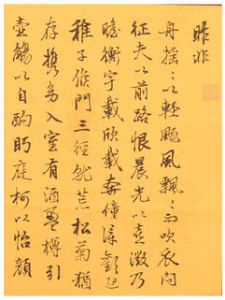 昨非
舟摇〻以輕颺風飄〻而吹衣问
征夫以前路恨晨光之熹微乃
瞻衡宇載欣載奔僮僕歡迎
稚子候門三徑就荒松菊猶
存携幼入室有酒盈樽引
壺觴以自酌眄庭柯以怡顔